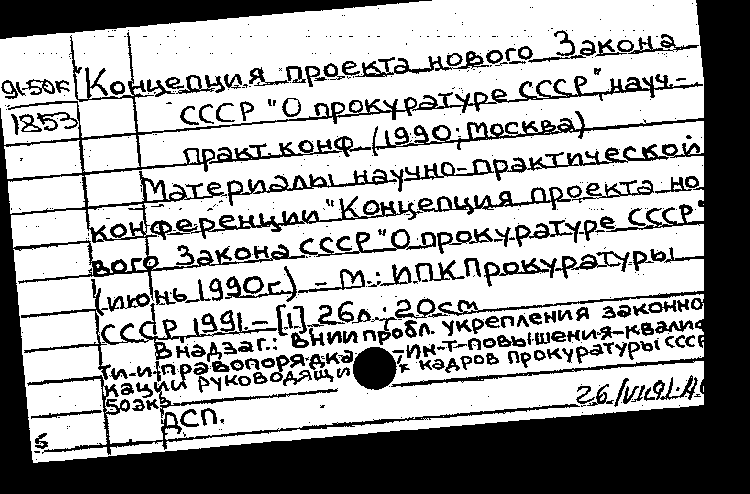 91-50к "Концепция проекта нового Закона
1853 СССР "О прокуратуре СССР", науч.-
практ. конф. (1990; Москва)
Материалы научно-практической
конференции "Концепция проекта но
вого Закона СССР "О прокуратуре СССР"
(июнь 1990г.) - М.: ИПК Прокуратуры
СССР, 1991. - [1], 26л.; 20см
В надзаг.: ВНИИ пробл. укрепления законно
ти и правопорядка Ин-т повышения квалифи
кации руководящи х кадров прокуратуры СССР
50экз
ДСП.
26/VI 91
5